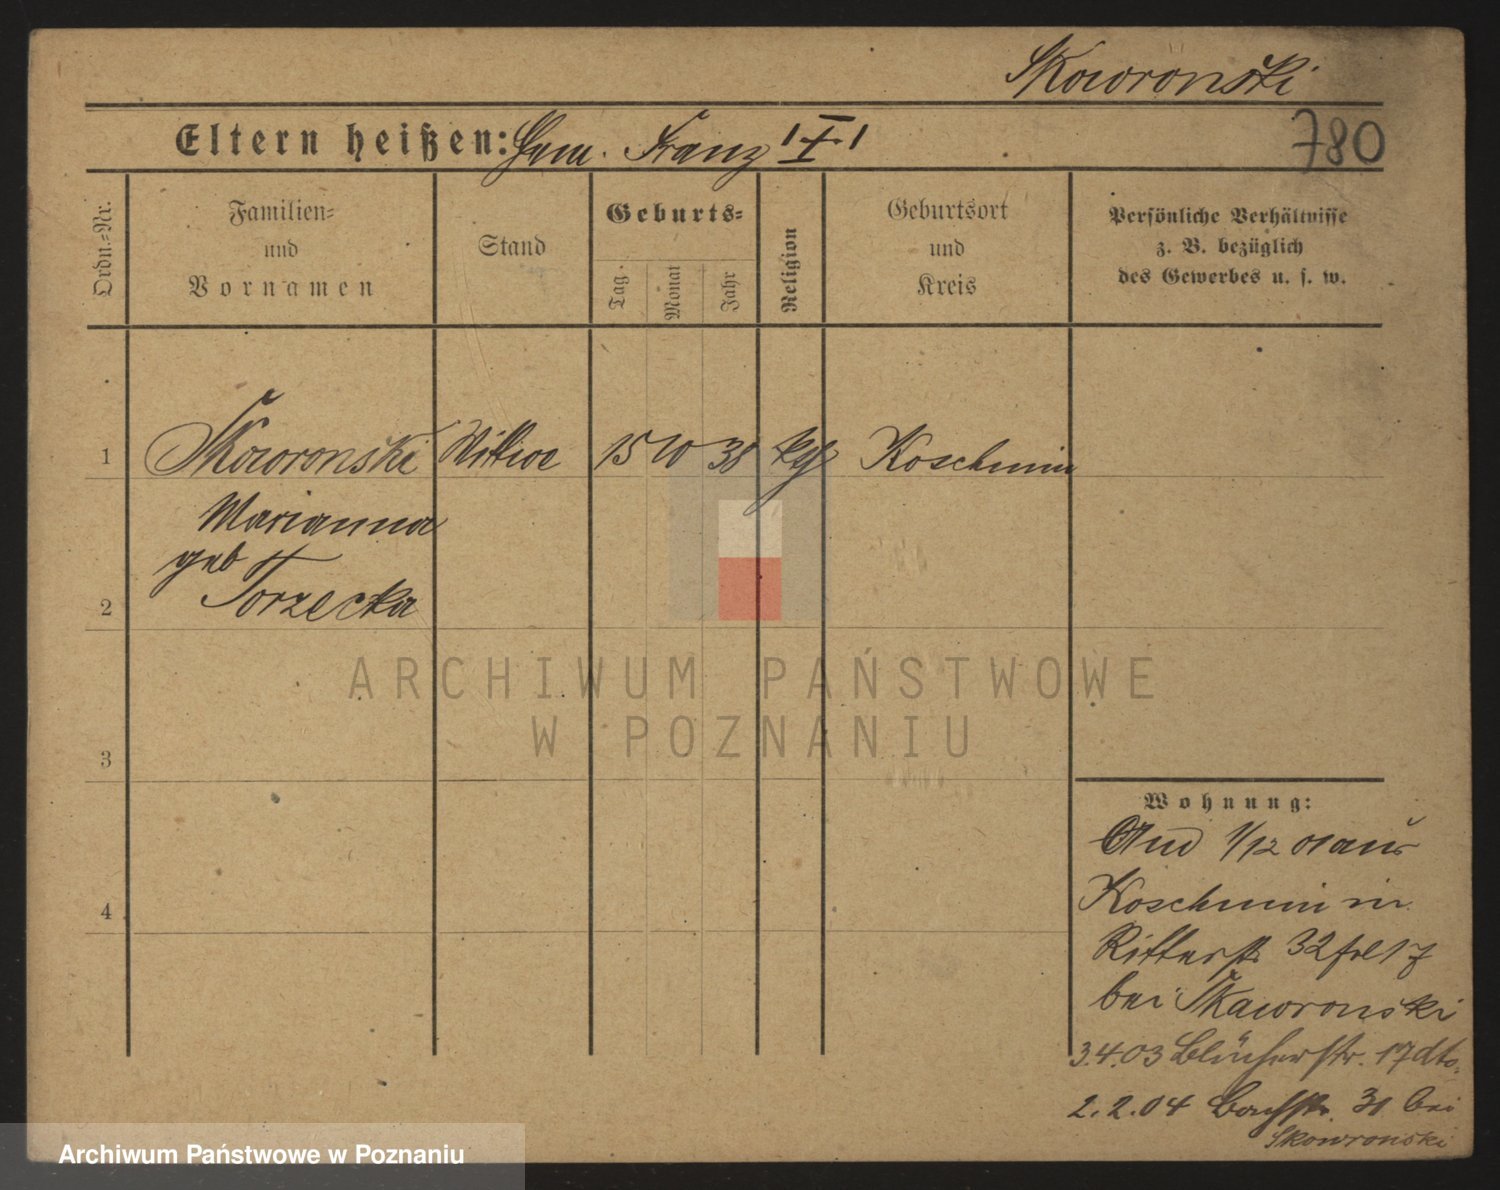 Skowronski
Eltern heißen: Franz
780
Ordn.=Nr.
Familien=
und
Vornamen
Stand
Geburts=
Tag.
Monat
Jahr
Religion
Geburtsort
und
Kreis
Persönliche Verhältnisse
z. B. bezüglich
des Gewerbes u. s. w.
1 Skowronski Wittwe 15 10 38 kth Koschmin
Marianna
geb
Torzecka
2
3
4
ARCHIWUM PAŃSTWOWE
W POZNANIU
Wohnung:
1/12 01 aus
Koschmin in
Ritterstr 32 17
bei Skowronski
3.4.03 Blücherstr. 17 dto.
2.2.04 Bachstr. 31 bei
Skowronski
Archiwum Państwowe w Poznaniu